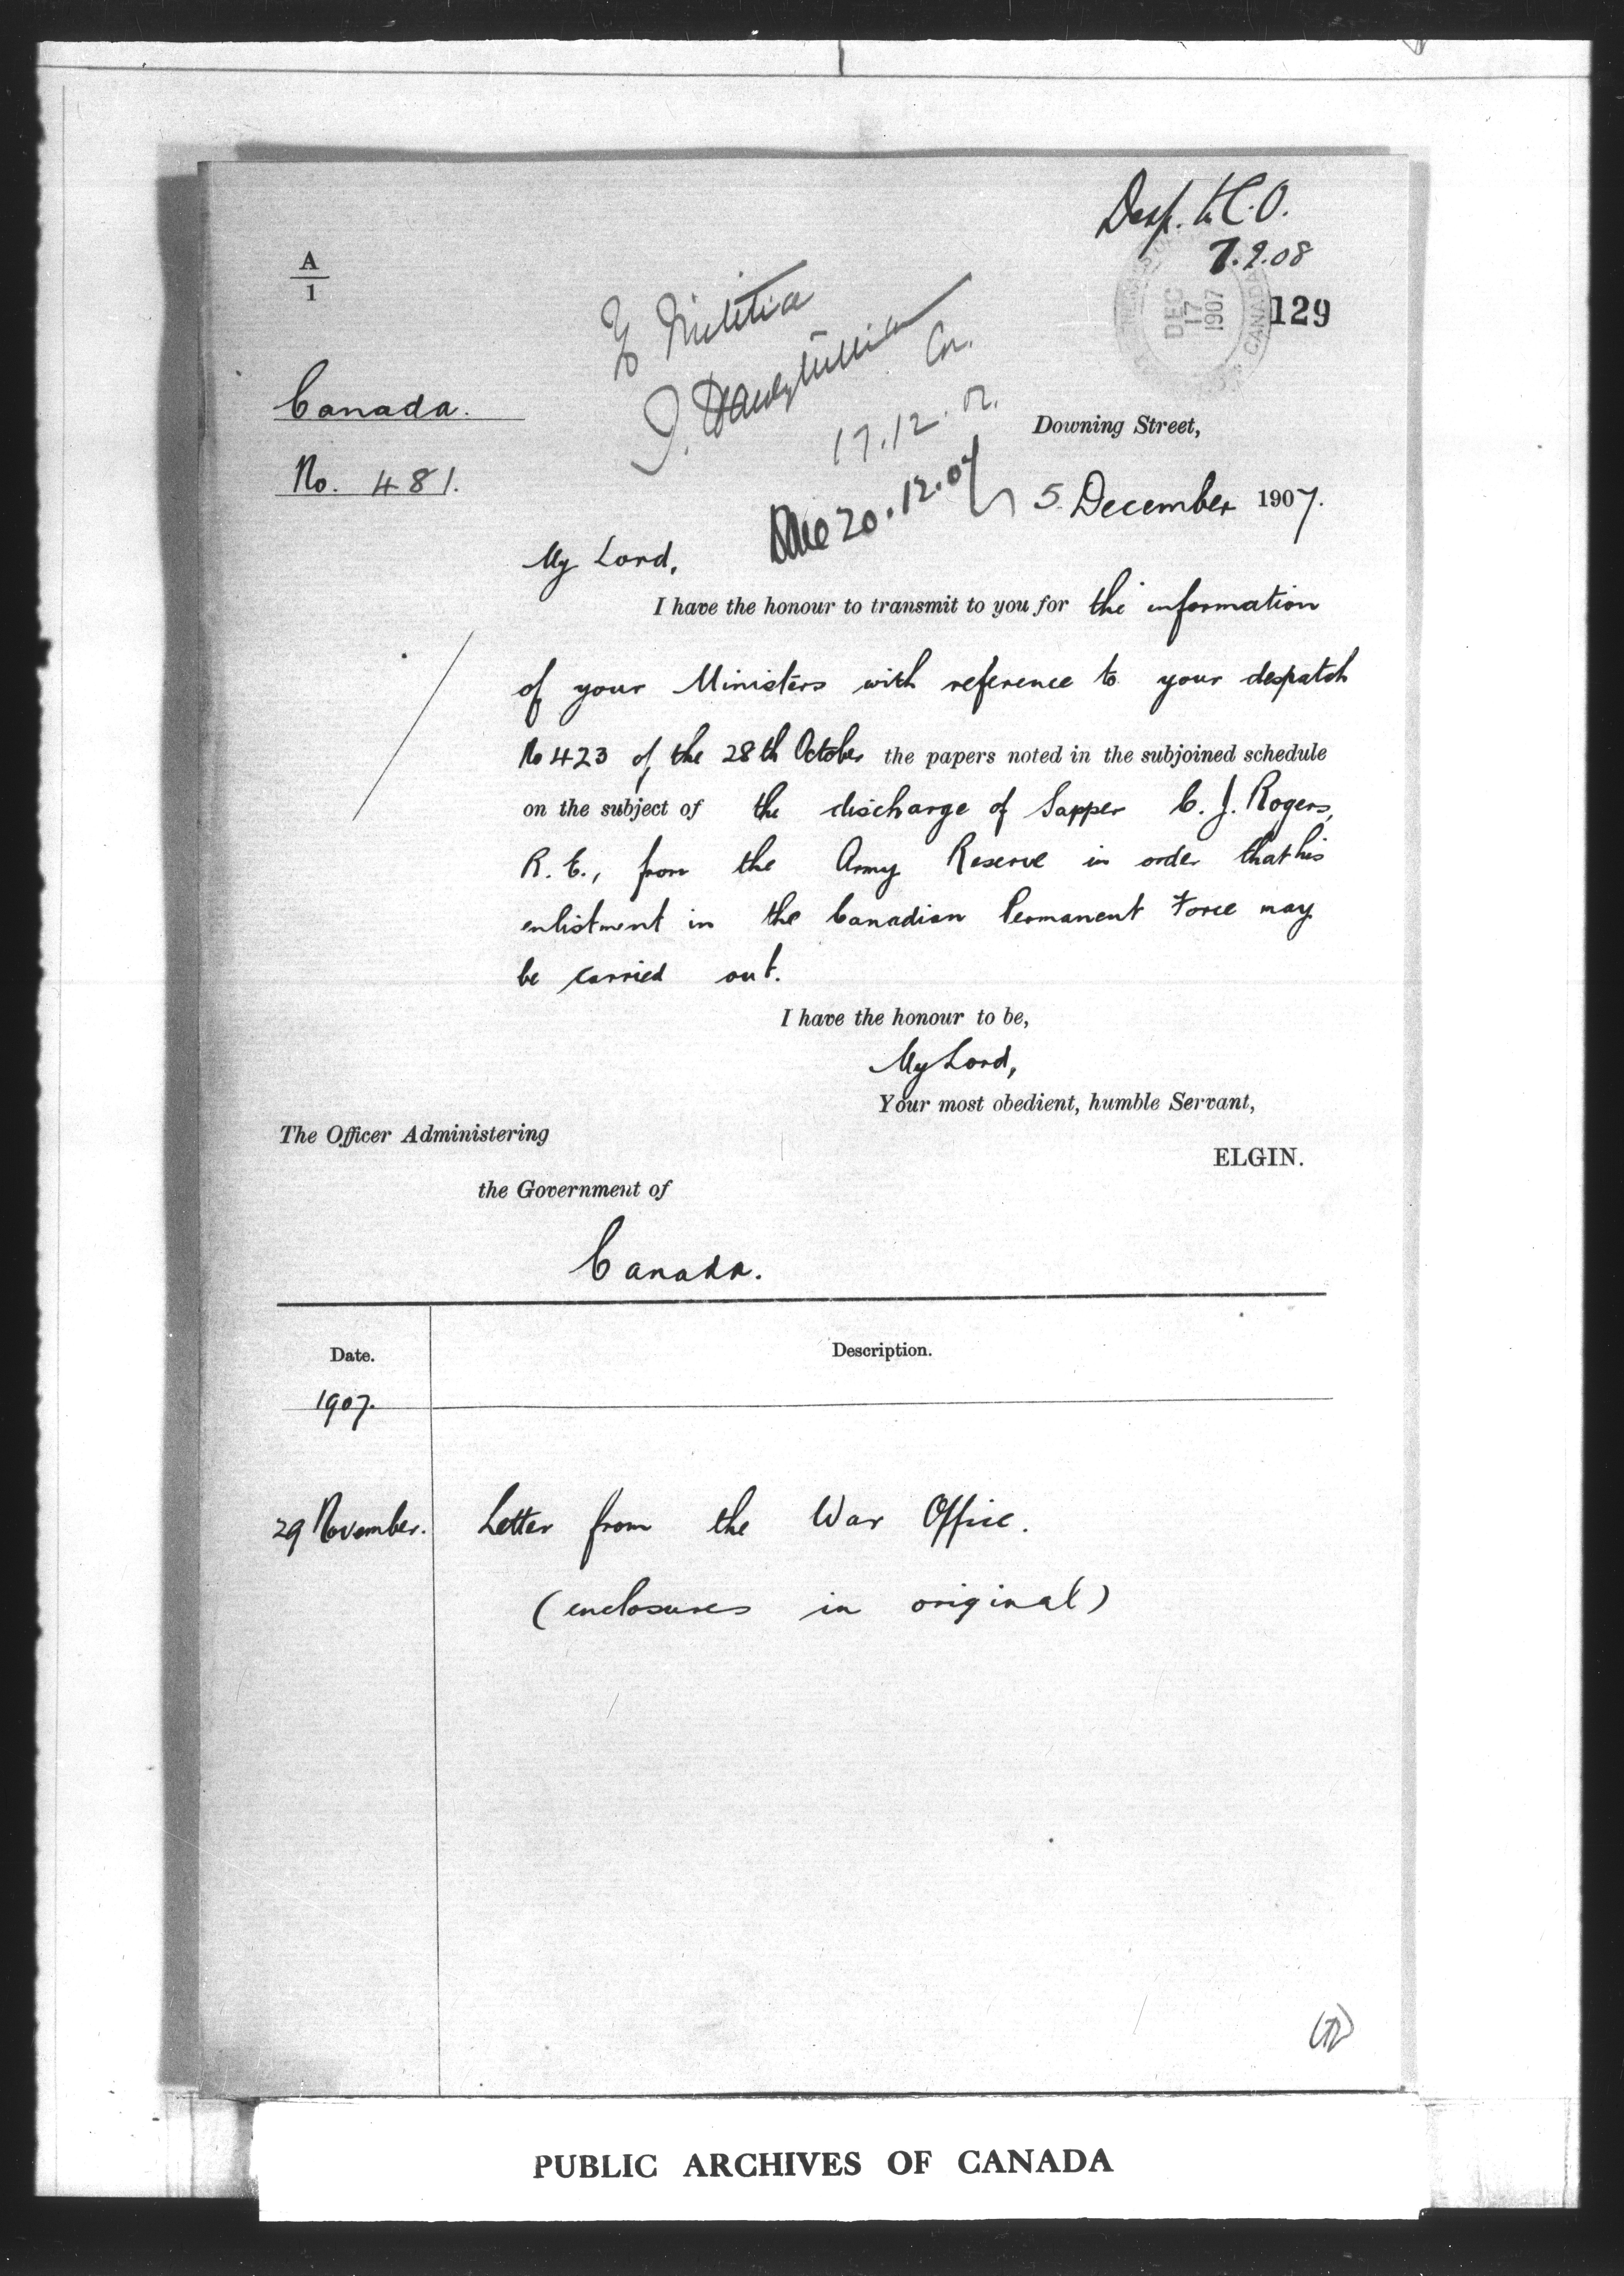 Desp. to C.O.
7.2.08
A
1
To Militia
DEC
17
1907
CANADA
129
Canada.
17.12.
Downing Street,
No. 481.
20.12.07
5 December 1907.
My Lord,
I have the honour to transmit to you for the information
of your Ministers with reference to your despatch
No 423 of the 28th October the papers noted in the subjoined schedule
on the subject of the discharge of Sapper C. J. Rogers,
R. E., from the Army Reserve in order that his
enlistment in the Canadian Permanent Force may
be carried out.
I have the honour to be,
My Lord,
Your most obedient, humble Servant,
The Officer Administering
ELGIN.
the Government of
Canada.
Date. Description.
1907.
29 November. Letter from the War Office.
(enclosures in original)
PUBLIC ARCHIVES OF CANADA